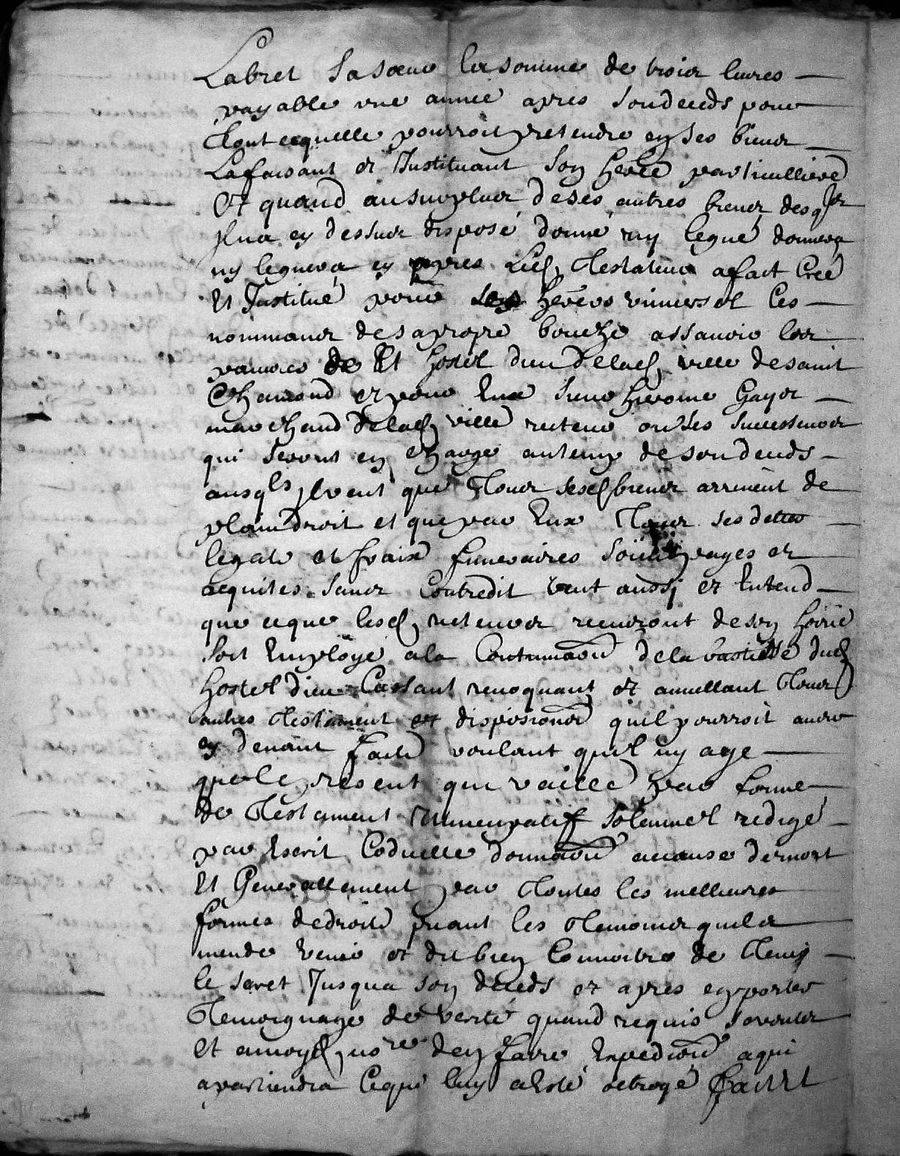 Labret sa sœur la somme de trois livres
payable une année apres son deceds pour
tout ce quelle pourroit pretendre en ses biens
La faisant et Instituant son here particulliere
Et quand au surplus de ses autres biens desqls
Il na cy dessus disposé donné ny legué donnera
ny leguera cy apres Ledt testateur a fait Creé
Et Institué pour ses heres universel Les
nommant de sa propre bouche assavoir les
pauvres de Lt hostel dieu de lad ville de saint
Chamond et pour Eux sieur hierome Gayot
marchand de lad ville recteur ou ses successeurs
qui seront en charge au temps de son deceds
ausqls Il veut que tous sesd biens arrivent de
plain droit et que par Eux tous ses dettes
legats et fraix funeraires soient payes et
acquites sans contredit veut aussy et Entend
que ce que lesd recteurs recevront de son hoirie
soit Employé a la Continuaon de la bastisse dud
hostel dieu Cassant revoquant et annullant tous
autres testament et disposions quil pourroit avoir
cy devant faits voulant quil ny aye
que le present qui vaille par forme
de testament nuncupatif solemnel redigé
par Escrit Codicille donnaon a cause de mort
Et Generallement par toutes les melleures
formes de droit priant les temoins quil a
mendé venir et dit bien Connoitre de tenir
le secret Jusqua son deceds et apres en porter
temoignage de verité quand requis seront
Et a moyd nore den faire Expedion a qui
apartiendra Ce qui luy a esté octroyé fait et